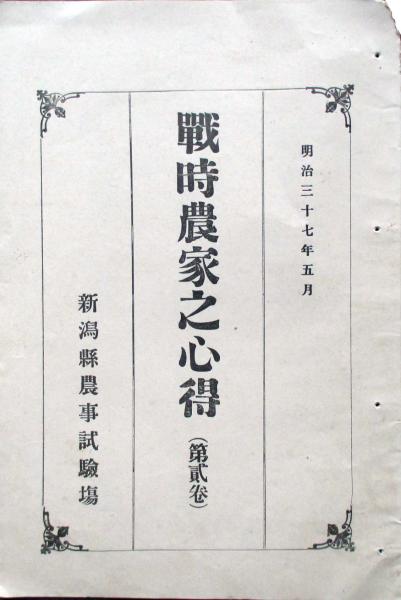 明治三十七年五月
戰時農家之心得(第貳卷)
新潟縣農事試驗塲